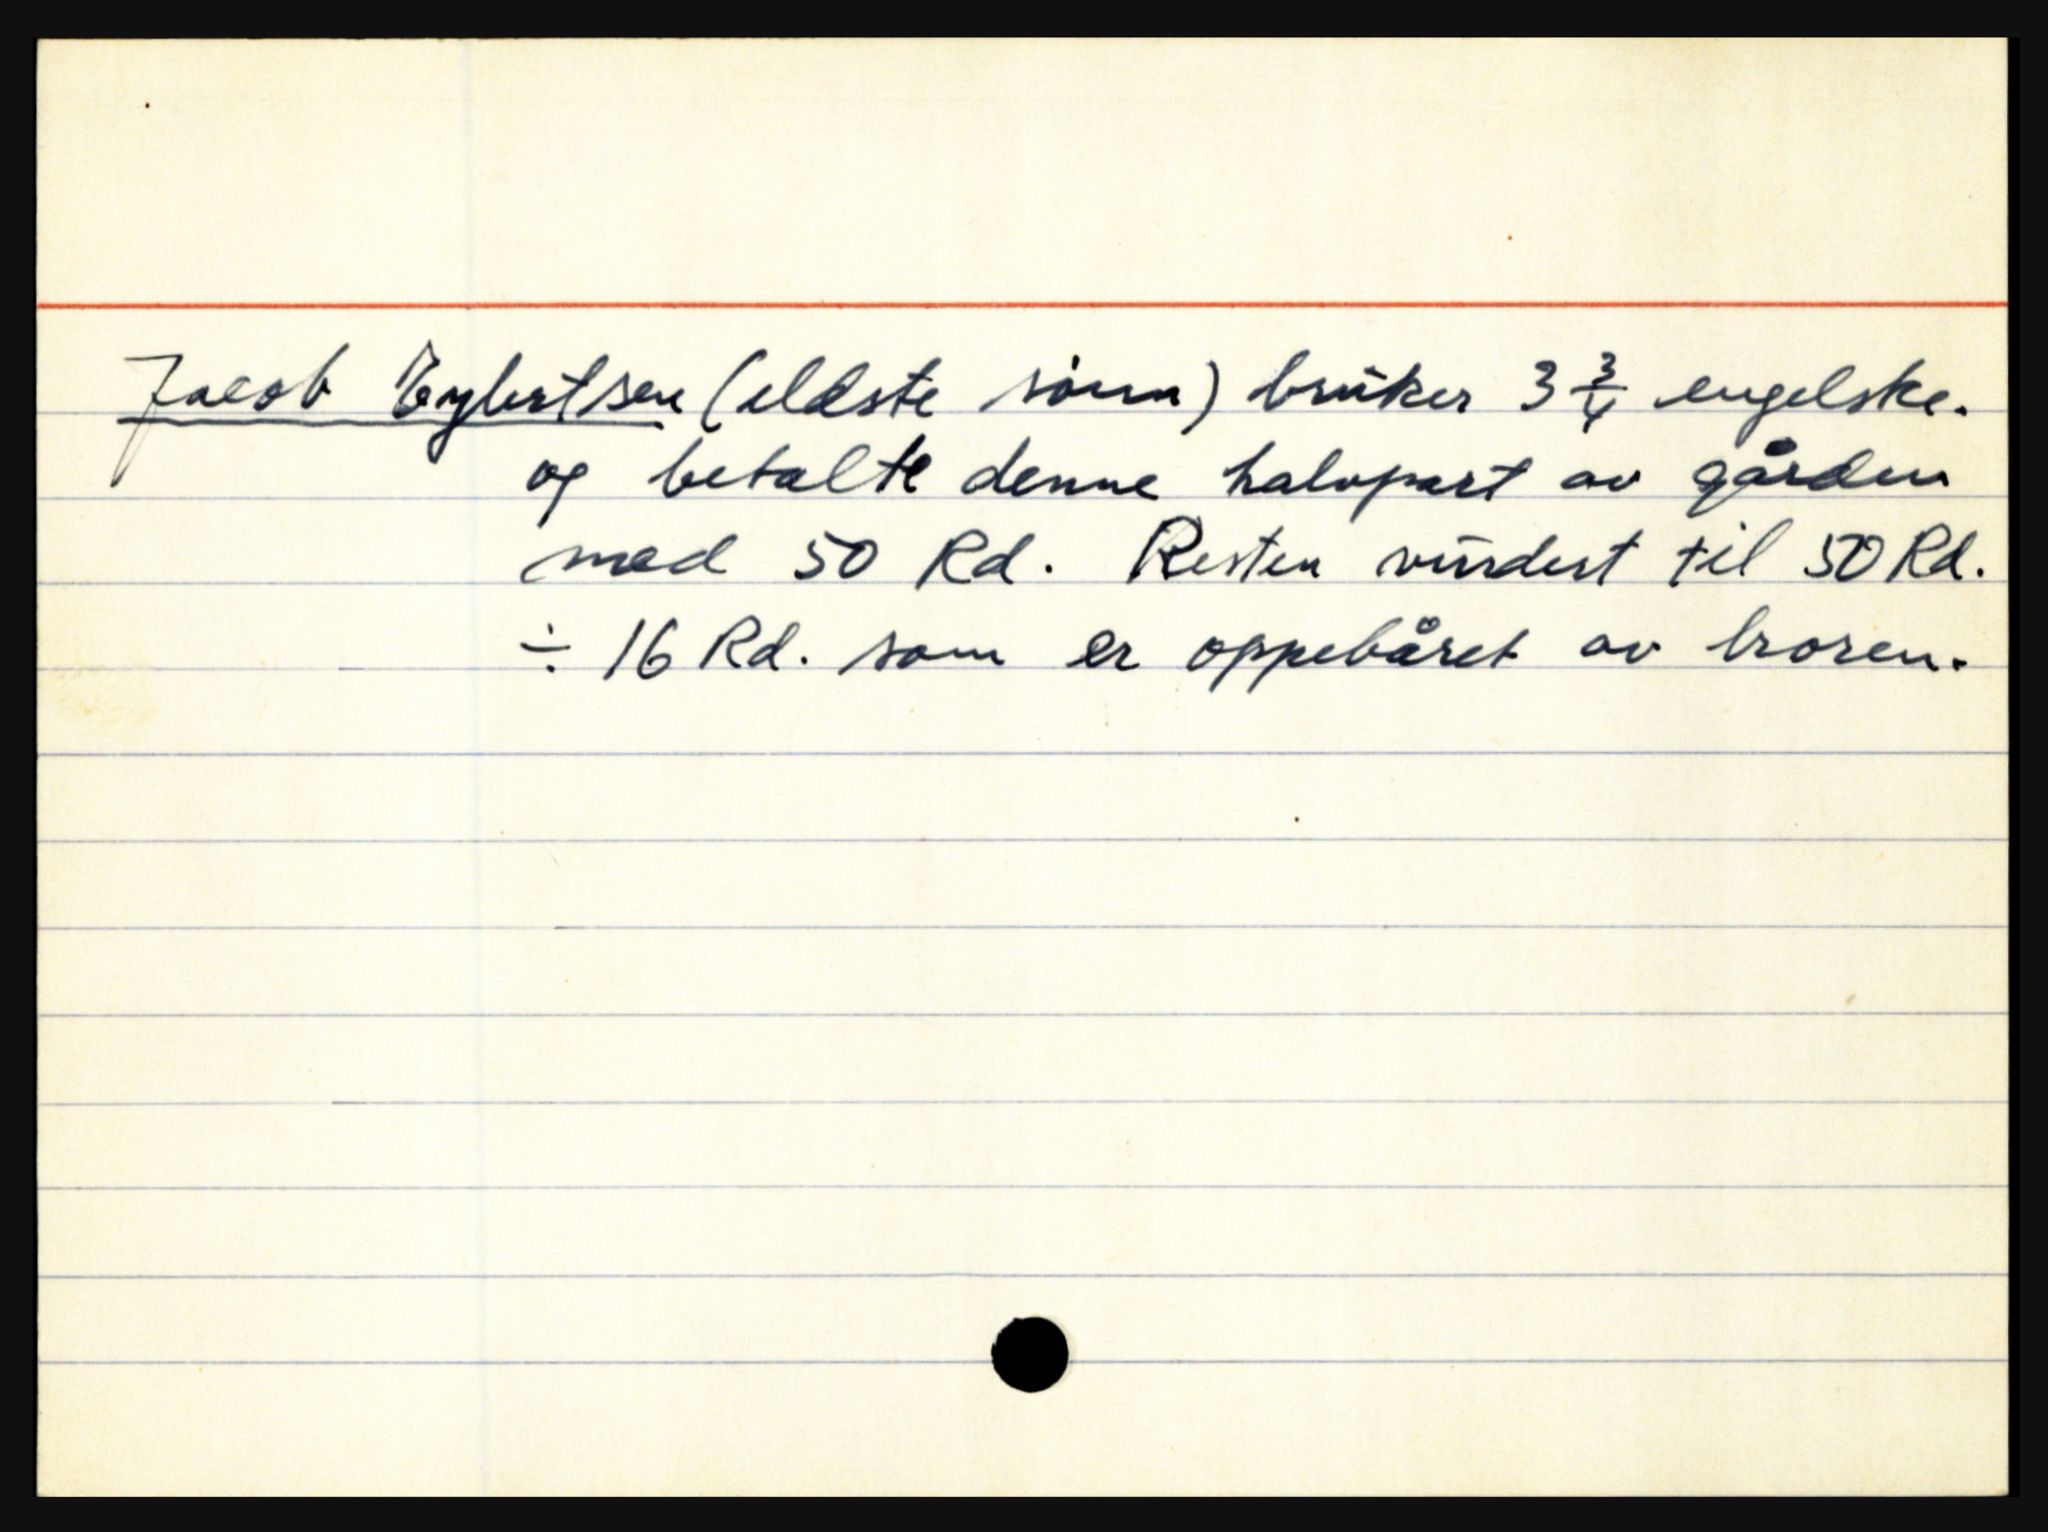 Jacob Eybertsen (eldste sønn) bruker 3 3/4 engelske.
og betalte denne halvpart av gården
med 50 Rd. Resten vurdert til 50 Rd.
÷ 16 Rd. som er oppebåret av broren.